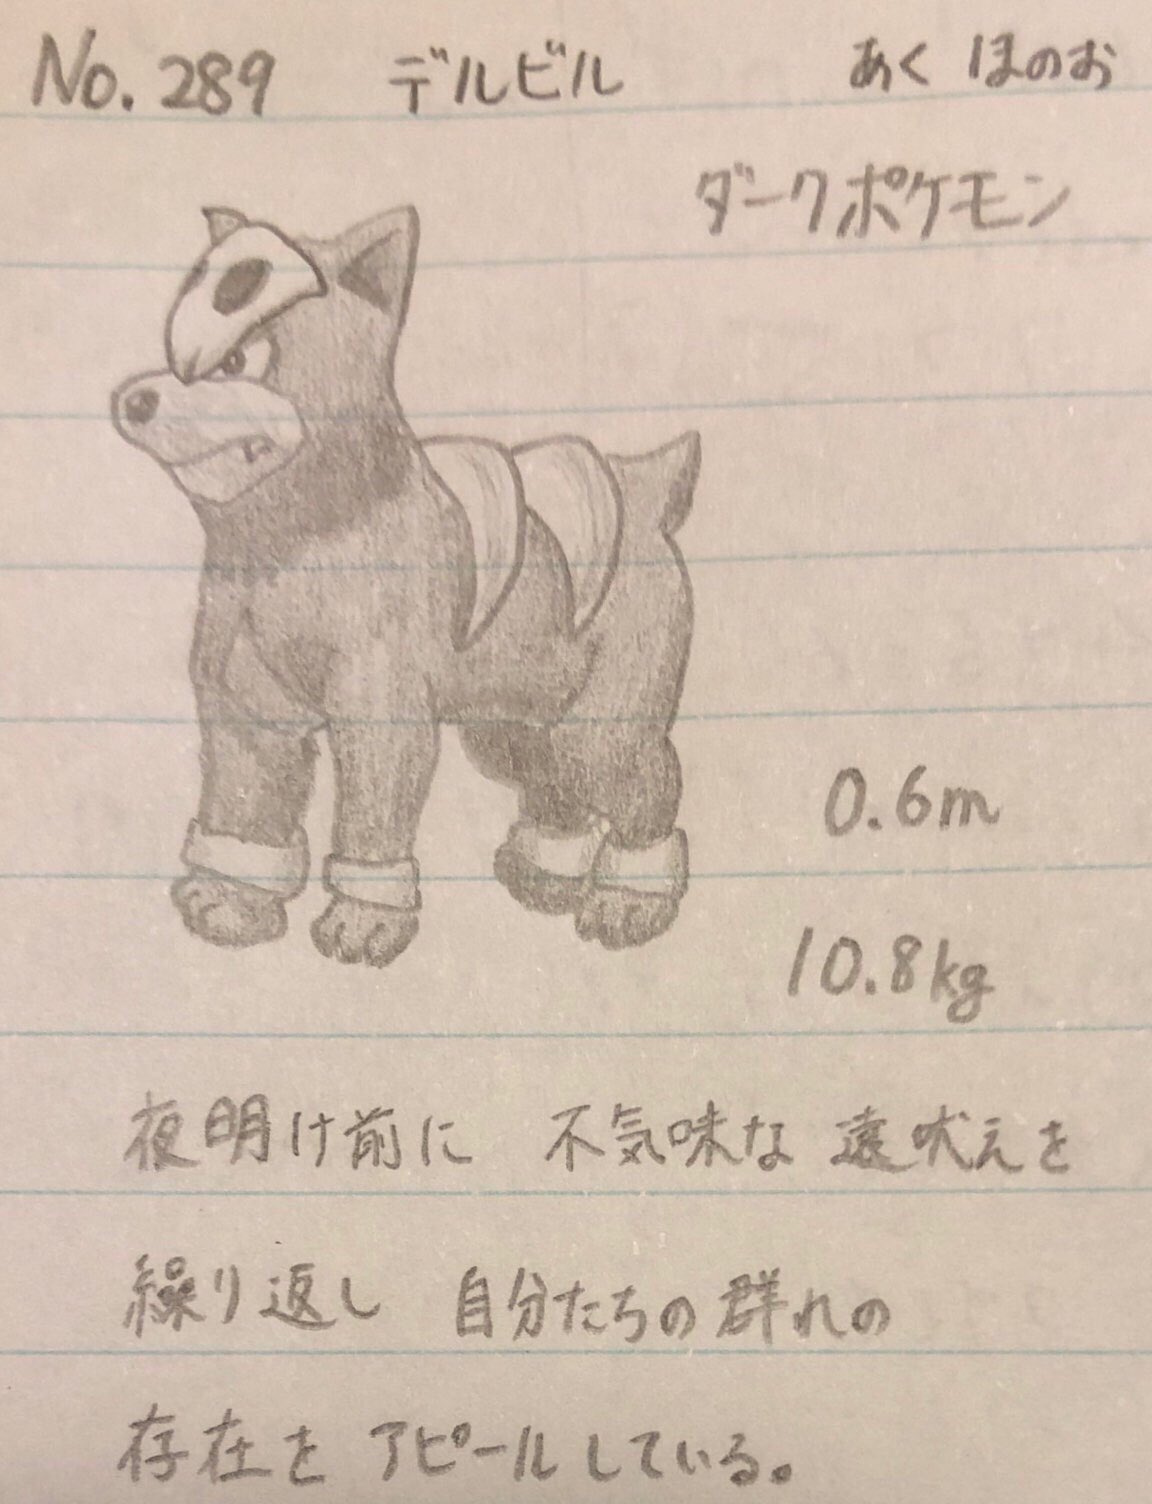 No.289 デルビル あく ほのお
ダークポケモン
0.6m
10.8kg
夜明け前に 不気味な 遠吠えを
繰り返し 自分たちの群れの
存在を アピールしている。